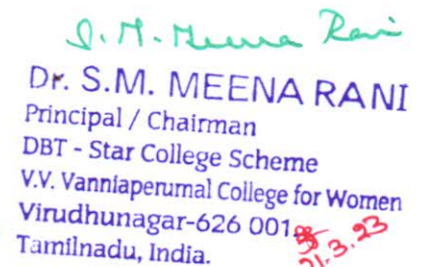 S. M. Meena Rani
Dr. S.M. MEENA RANI
Principal / Chairman
DBT - Star College Scheme
V.V. Vanniaperumal College for Women
Virudhunagar-626 001.
21.3.23
Tamilnadu, India.